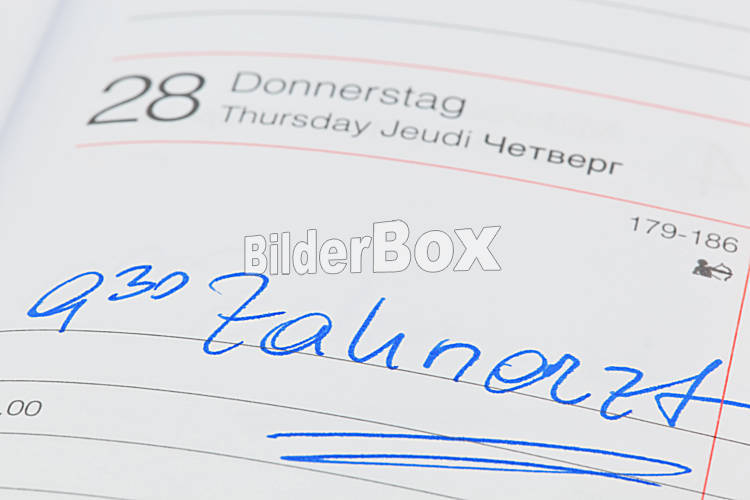 28 Donnerstag
Thursday Jeudi Четверг
179-186
BilderBox
9³⁰ Zahnarzt
.00